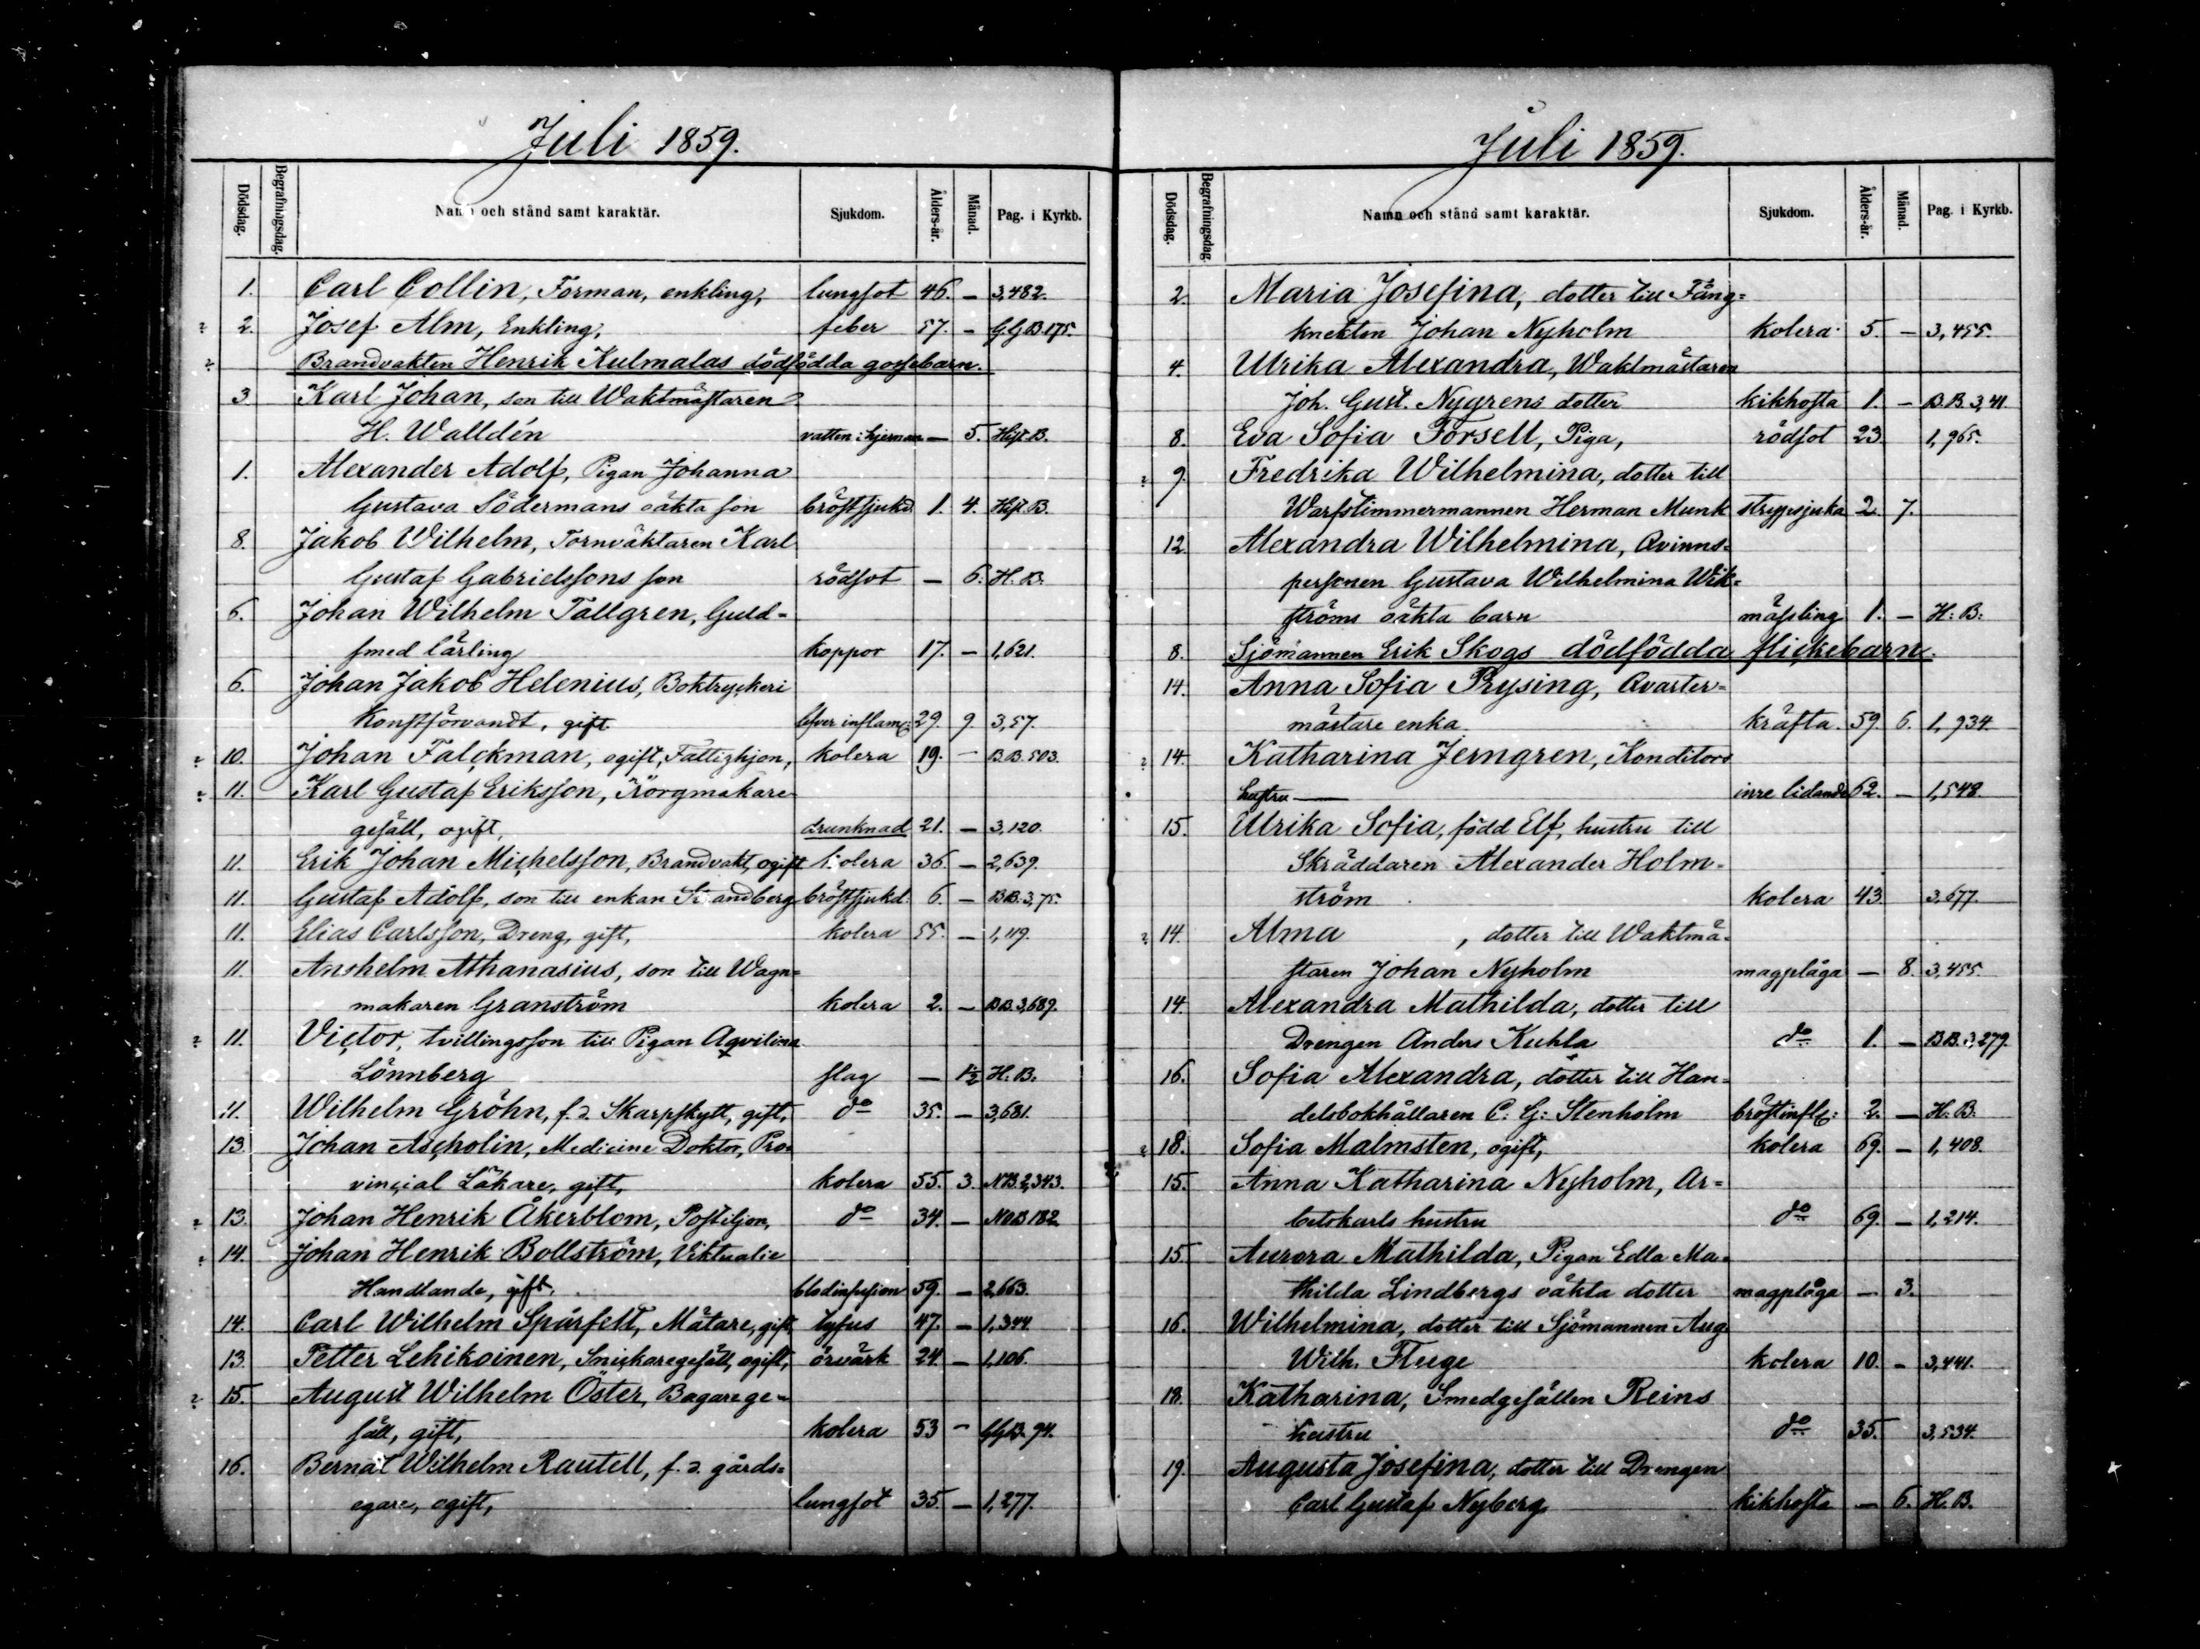 Juli 1859.
Dödsdag. Begrafningsdag. Namn och stånd samt karaktär. Sjukdom. Ålders-år. Månad. Pag. i Kyrkb.
1. Carl Collin, Förman, enkling, lungsot 46. — 3,482.
2. Josef Alm, Enkling, feber 57. — G.G.B. 175.
Brandvakten Henrik Kulmalas dödfödda gossebarn.
3. Karl Johan, son till Waktmästaren
H. Walldén vatten i hjernan — 5. Hist. B.
1. Alexander Adolf, Pigan Johanna
Gustava Södermans oäkta son bröstsjukd. 1. 4. Hist. B.
8. Jakob Wilhelm, Tornväktaren Karl
Gustaf Gabrielssons son rödsot — 6. H. B.
6. Johan Wilhelm Tallgren, Guld-
smed lärling koppor 17. — 1,621.
6. Johan Jakob Helenius, Boktryckeri
Konstförvandt, gift lefver inflam: 29. 9. 3,57.
10. Johan Falckman, ogift, Fattighjon, kolera 19. — B.B. 503.
11. Karl Gustaf Eriksson, Körgmakare
gesäll, ogift, drunknad 21. — 3,120.
11. Erik Johan Michelsson, Brandvakt, ogift kolera 36. — 2,639.
11. Gustaf Adolf, son till enkan Strandberg bröstsjukd. 6. — B.B. 3,75.
11. Elias Carlsson, Dreng, gift, kolera 55. — 1,119.
11. Anshelm Athanasius, son till Wagn-
makaren Granström kolera 2. — B.B. 3,689.
11. Victor, tvillingsson till Pigan Aqvilina
Lönnberg slag — 1½ H. B.
11. Wilhelm Gröhn, f. d. Skarpskytt, gift, do 35. — 3,681.
13. Johan Ascholin, Medicine Doktor, Pro-
vincial Läkare, gift, kolera 55. 3. N.B. 2,343.
13. Johan Henrik Åkerblom, Postiljon, do 34. — No. B. 182.
14. Johan Henrik Bollström, Viktualie
Handlande, gift. 59. — 2,663.
14. Carl Wilhelm Spårfelt, Mätare, gift, tyfus 47. — 1,344.
13. Petter Lehikoinen, Snickaregesäll, ogift, örvärk 24. — 1,106.
15. August Wilhelm Öster, Bagarege-
säll, gift, kolera 53 — G.G.B. 94.
16. Bernat Wilhelm Rautell, f. d. gårds-
egare, ogift, lungsot 35. — 1,277.
Juli 1859.
Dödsdag. Begrafningsdag. Namn och stånd samt karaktär. Sjukdom. Ålders-år. Månad. Pag. i Kyrkb.
2. Maria Josefina, dotter till Fång-
knekten Johan Nyholm kolera 5. — 3,455.
4. Ulrika Alexandra, Waktmästaren
Joh. Gust. Nygrens dotter kikhosta 1. — B.B. 3,41.
8. Eva Sofia Forsell, Piga, rödsot 23. 1,965.
9. Fredrika Wilhelmina, dotter till
Warfstimmermannen Herman Munk strypsjuka 2. 7.
12. Alexandra Wilhelmina, Qvinns-
personen Gustava Wilhelmina Wik-
ströms oäkta barn mässling 1. — H. B.
8. Sjömannen Erik Skogs dödfödda flickebarn.
14. Anna Sofia Prysing, Qvarter-
mästare enka kräfta 59. 6. 1,934.
14. Katharina Jerngren, Konditors
hustru — inre lidande 62. — 1,548.
15. Ulrika Sofia, född Elf, hustru till
Skräddaren Alexander Holm-
ström kolera 43. 3,677.
14. Alma , dotter till Waktmä-
staren Johan Nyholm magplåga — 8. 3,455.
14. Alexandra Mathilda, dotter till
Drengen Anders Kuhla do 1. — B.B. 3,279.
16. Sofia Alexandra, dotter till Han-
delsbokhållaren C. G. Stenholm bröstinfl: 2. — H. B.
18. Sofia Malmsten, ogift, kolera 69. — 1,408.
15. Anna Katharina Nyholm, Ar-
betskarls hustru do 69. — 1,214.
15. Aurora Mathilda, Pigan Edla Ma-
thilda Lindbergs oäkta dotter magplåga — 3.
16. Wilhelmina, dotter till Sjömannen Aug.
Wilh. Fluge kolera 10. — 3,441.
18. Katharina, Smedgesällen Reins
hustru do 35. 3,534.
19. Augusta Josefina, dotter till Drengen
Carl Gustaf Nyberg kikhosta — 6. H. B.